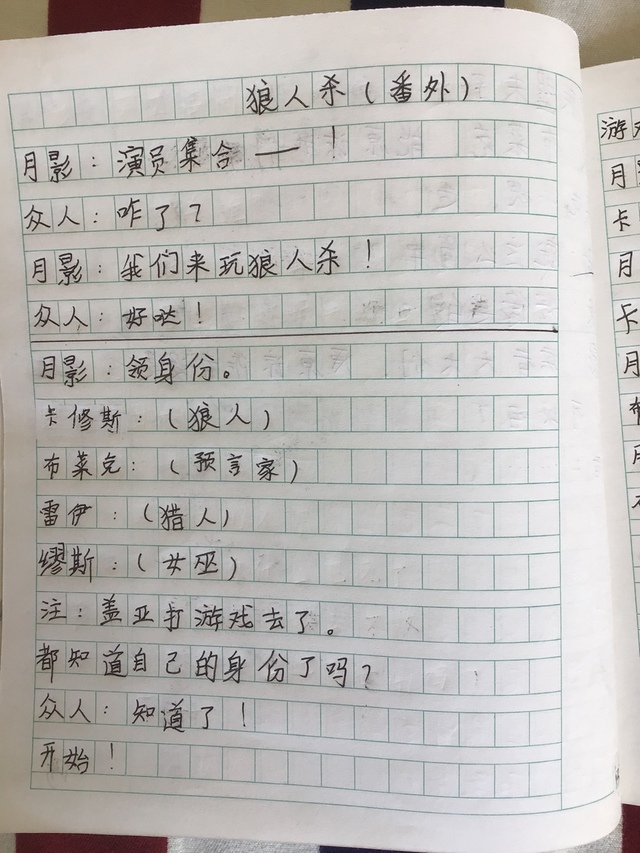 狼人杀（番外）
月影：演员集合——！
众人：咋了？
月影：我们来玩狼人杀！
众人：好哒！
月影：领身份。
卡修斯：（狼人）
布莱克：（预言家）
雷伊：（猎人）
缪斯：（女巫）
注：盖亚打游戏去了。
都知道自己的身份了吗？
众人：知道了！
开始！
游戏
月
卡
月
卡
月
布